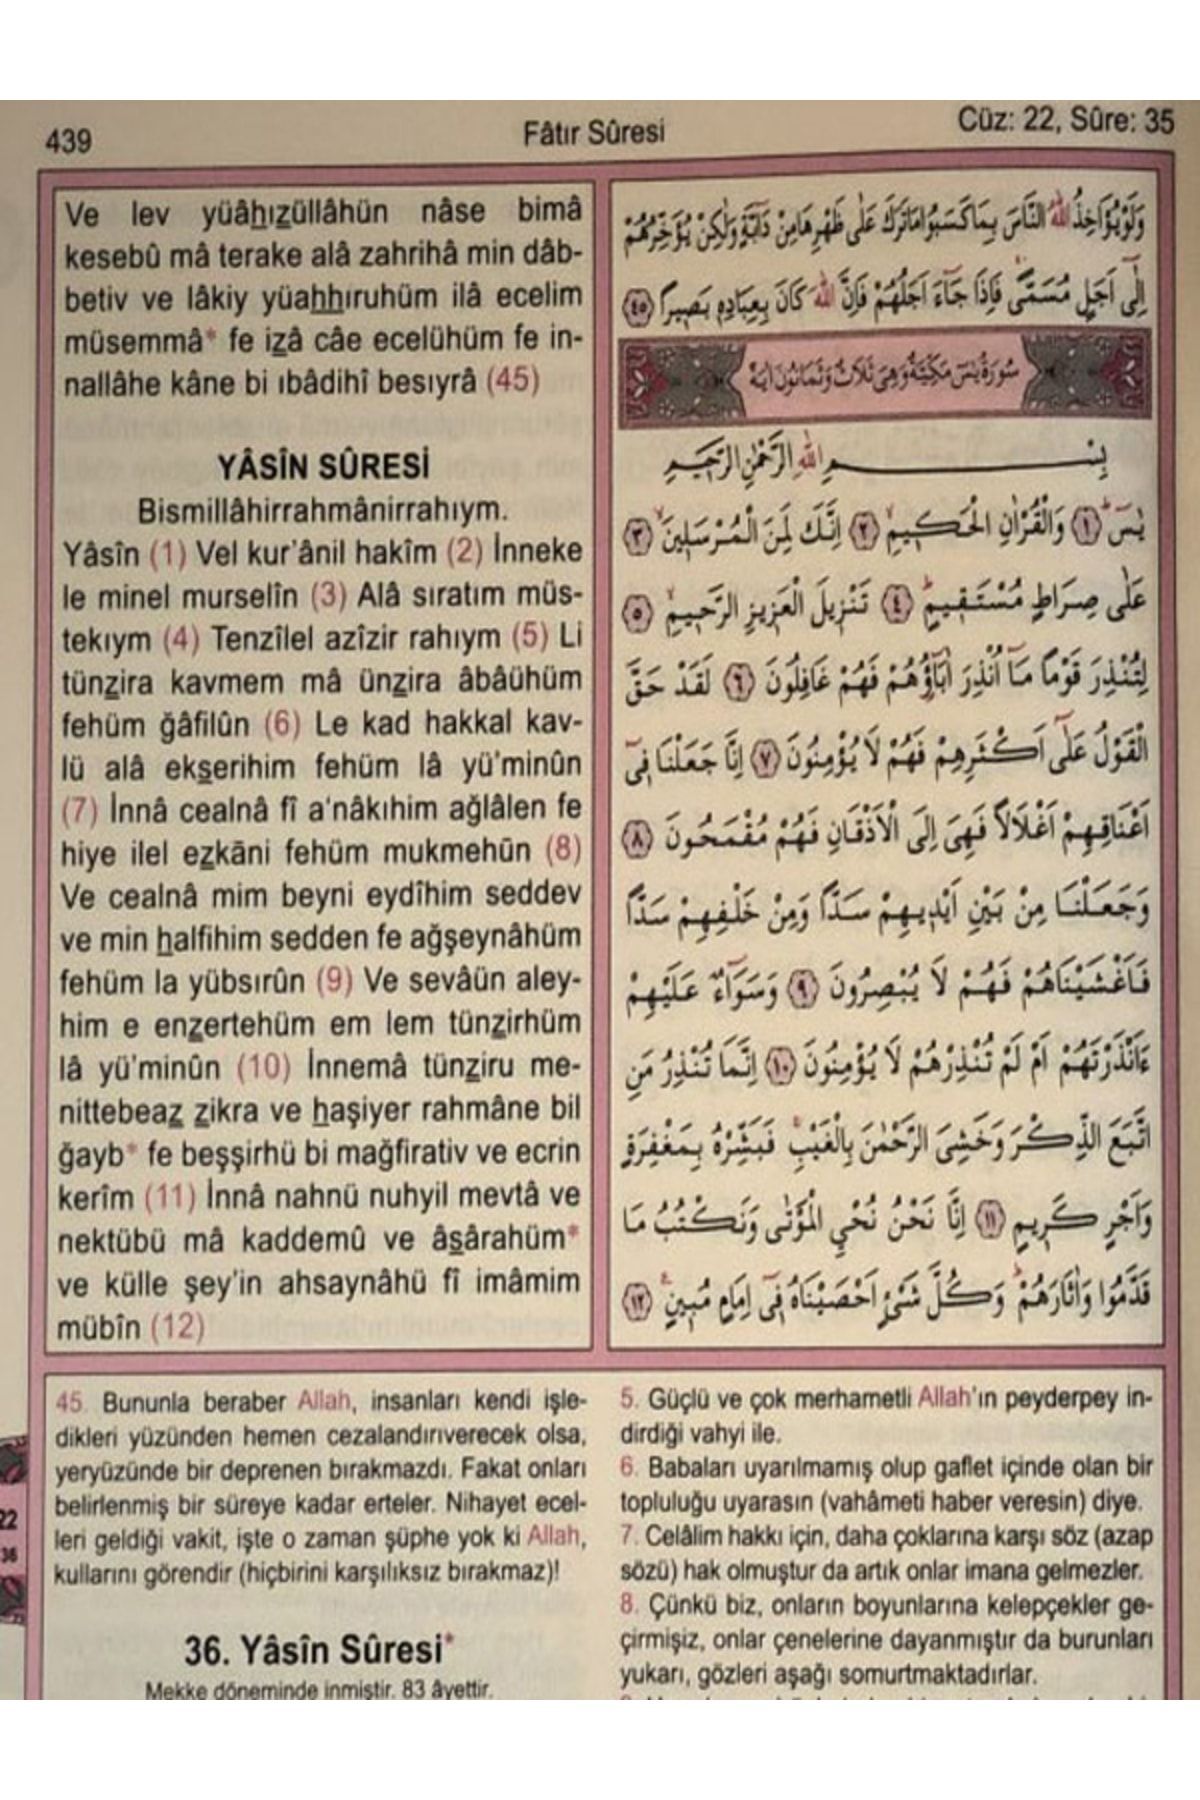 439
Fâtır Sûresi
Cüz: 22, Sûre: 35
Ve lev yüâhızüllâhün nâse bimâ
kesebû mâ terake alâ zahrihâ min dâb-
betiv ve lâkiy yüahhıruhüm ilâ ecelim
müsemmâ* fe izâ câe ecelühüm fe in-
nallâhe kâne bi ıbâdihî besıyrâ (45)
YÂSÎN SÛRESİ
Bismillâhirrahmânirrahıym.
Yâsîn (1) Vel kur'ânil hakîm (2) İnneke
le minel murselîn (3) Alâ sıratım müs-
tekıym (4) Tenzîlel azîzir rahıym (5) Li
tünzira kavmem mâ ünzira âbâühüm
fehüm ğâfilûn (6) Le kad hakkal kav-
lü alâ ekserihim fehüm lâ yü'minûn
(7) İnnâ cealnâ fî a'nâkıhim ağlâlen fe
hiye ilel ezkāni fehüm mukmehûn (8)
Ve cealnâ mim beyni eydîhim seddev
ve min halfihim sedden fe ağşeynâhüm
fehüm la yübsırûn (9) Ve sevâün aley-
him e enzertehüm em lem tünzirhüm
lâ yü'minûn (10) İnnemâ tünziru me-
nittebeaz zikra ve haşiyer rahmâne bil
ğayb* fe beşşirhü bi mağfirativ ve ecrin
kerîm (11) İnnâ nahnü nuhyil mevtâ ve
nektübü mâ kaddemû ve âsârahüm*
ve külle şey'in ahsaynâhü fî imâmim
mübîn (12)
وَلَوْ يُؤَاخِذُ اللّٰهُ النَّاسَ بِمَا كَسَبُوا مَا تَرَكَ عَلٰى ظَهْرِهَا مِنْ دَٓابَّةٍ وَلٰكِنْ يُؤَخِّرُهُمْ
اِلٰٓى اَجَلٍ مُسَمًّىۚ فَاِذَا جَٓاءَ اَجَلُهُمْ فَاِنَّ اللّٰهَ كَانَ بِعِبَادِهٖ بَصٖيرًا ﴿٤٥﴾
سُورَةُ يٰسٓ مَكِّيَّةٌ وَهِيَ ثَلَاثٌ وَثَمَانُونَ اٰيَةً
بِسْمِ اللّٰهِ الرَّحْمٰنِ الرَّحٖيمِ
يٰسٓۜ ﴿١﴾ وَالْقُرْاٰنِ الْحَكٖيمِۙ ﴿٢﴾ اِنَّكَ لَمِنَ الْمُرْسَلٖينَۙ ﴿٣﴾
عَلٰى صِرَاطٍ مُسْتَقٖيمٍۜ ﴿٤﴾ تَنْزٖيلَ الْعَزٖيزِ الرَّحٖيمِۙ ﴿٥﴾
لِتُنْذِرَ قَوْمًا مَٓا اُنْذِرَ اٰبَٓاؤُ۬هُمْ فَهُمْ غَافِلُونَ ﴿٦﴾ لَقَدْ حَقَّ
الْقَوْلُ عَلٰٓى اَكْثَرِهِمْ فَهُمْ لَا يُؤْمِنُونَ ﴿٧﴾ اِنَّا جَعَلْنَا فٖٓى
اَعْنَاقِهِمْ اَغْلَالًا فَهِىَ اِلَى الْاَذْقَانِ فَهُمْ مُقْمَحُونَ ﴿٨﴾
وَجَعَلْنَا مِنْ بَيْنِ اَيْدٖيهِمْ سَدًّا وَمِنْ خَلْفِهِمْ سَدًّا
فَاَغْشَيْنَاهُمْ فَهُمْ لَا يُبْصِرُونَ ﴿٩﴾ وَسَوَٓاءٌ عَلَيْهِمْ
ءَاَنْذَرْتَهُمْ اَمْ لَمْ تُنْذِرْهُمْ لَا يُؤْمِنُونَ ﴿١٠﴾ اِنَّمَا تُنْذِرُ مَنِ
اتَّبَعَ الذِّكْرَ وَخَشِىَ الرَّحْمٰنَ بِالْغَيْبِۚ فَبَشِّرْهُ بِمَغْفِرَةٍ
وَاَجْرٍ كَرٖيمٍ ﴿١١﴾ اِنَّا نَحْنُ نُحْىِ الْمَوْتٰى وَنَكْتُبُ مَا
قَدَّمُوا وَاٰثَارَهُمْۜ وَكُلَّ شَىْءٍ اَحْصَيْنَاهُ فٖٓى اِمَامٍ مُبٖينٍ۟ ﴿١٢﴾
45. Bununla beraber Allah, insanları kendi işle-
dikleri yüzünden hemen cezalandırıverecek olsa,
yeryüzünde bir deprenen bırakmazdı. Fakat onları
belirlenmiş bir süreye kadar erteler. Nihayet ecel-
leri geldiği vakit, işte o zaman şüphe yok ki Allah,
kullarını görendir (hiçbirini karşılıksız bırakmaz)!
36. Yâsîn Sûresi*
Mekke döneminde inmiştir. 83 âyettir.
5. Güçlü ve çok merhametli Allah'ın peyderpey in-
dirdiği vahyi ile.
6. Babaları uyarılmamış olup gaflet içinde olan bir
topluluğu uyarasın (vahâmeti haber veresin) diye.
7. Celâlim hakkı için, daha çoklarına karşı söz (azap
sözü) hak olmuştur da artık onlar imana gelmezler.
8. Çünkü biz, onların boyunlarına kelepçekler ge-
çirmişiz, onlar çenelerine dayanmıştır da burunları
yukarı, gözleri aşağı somurtmaktadırlar.
22
36